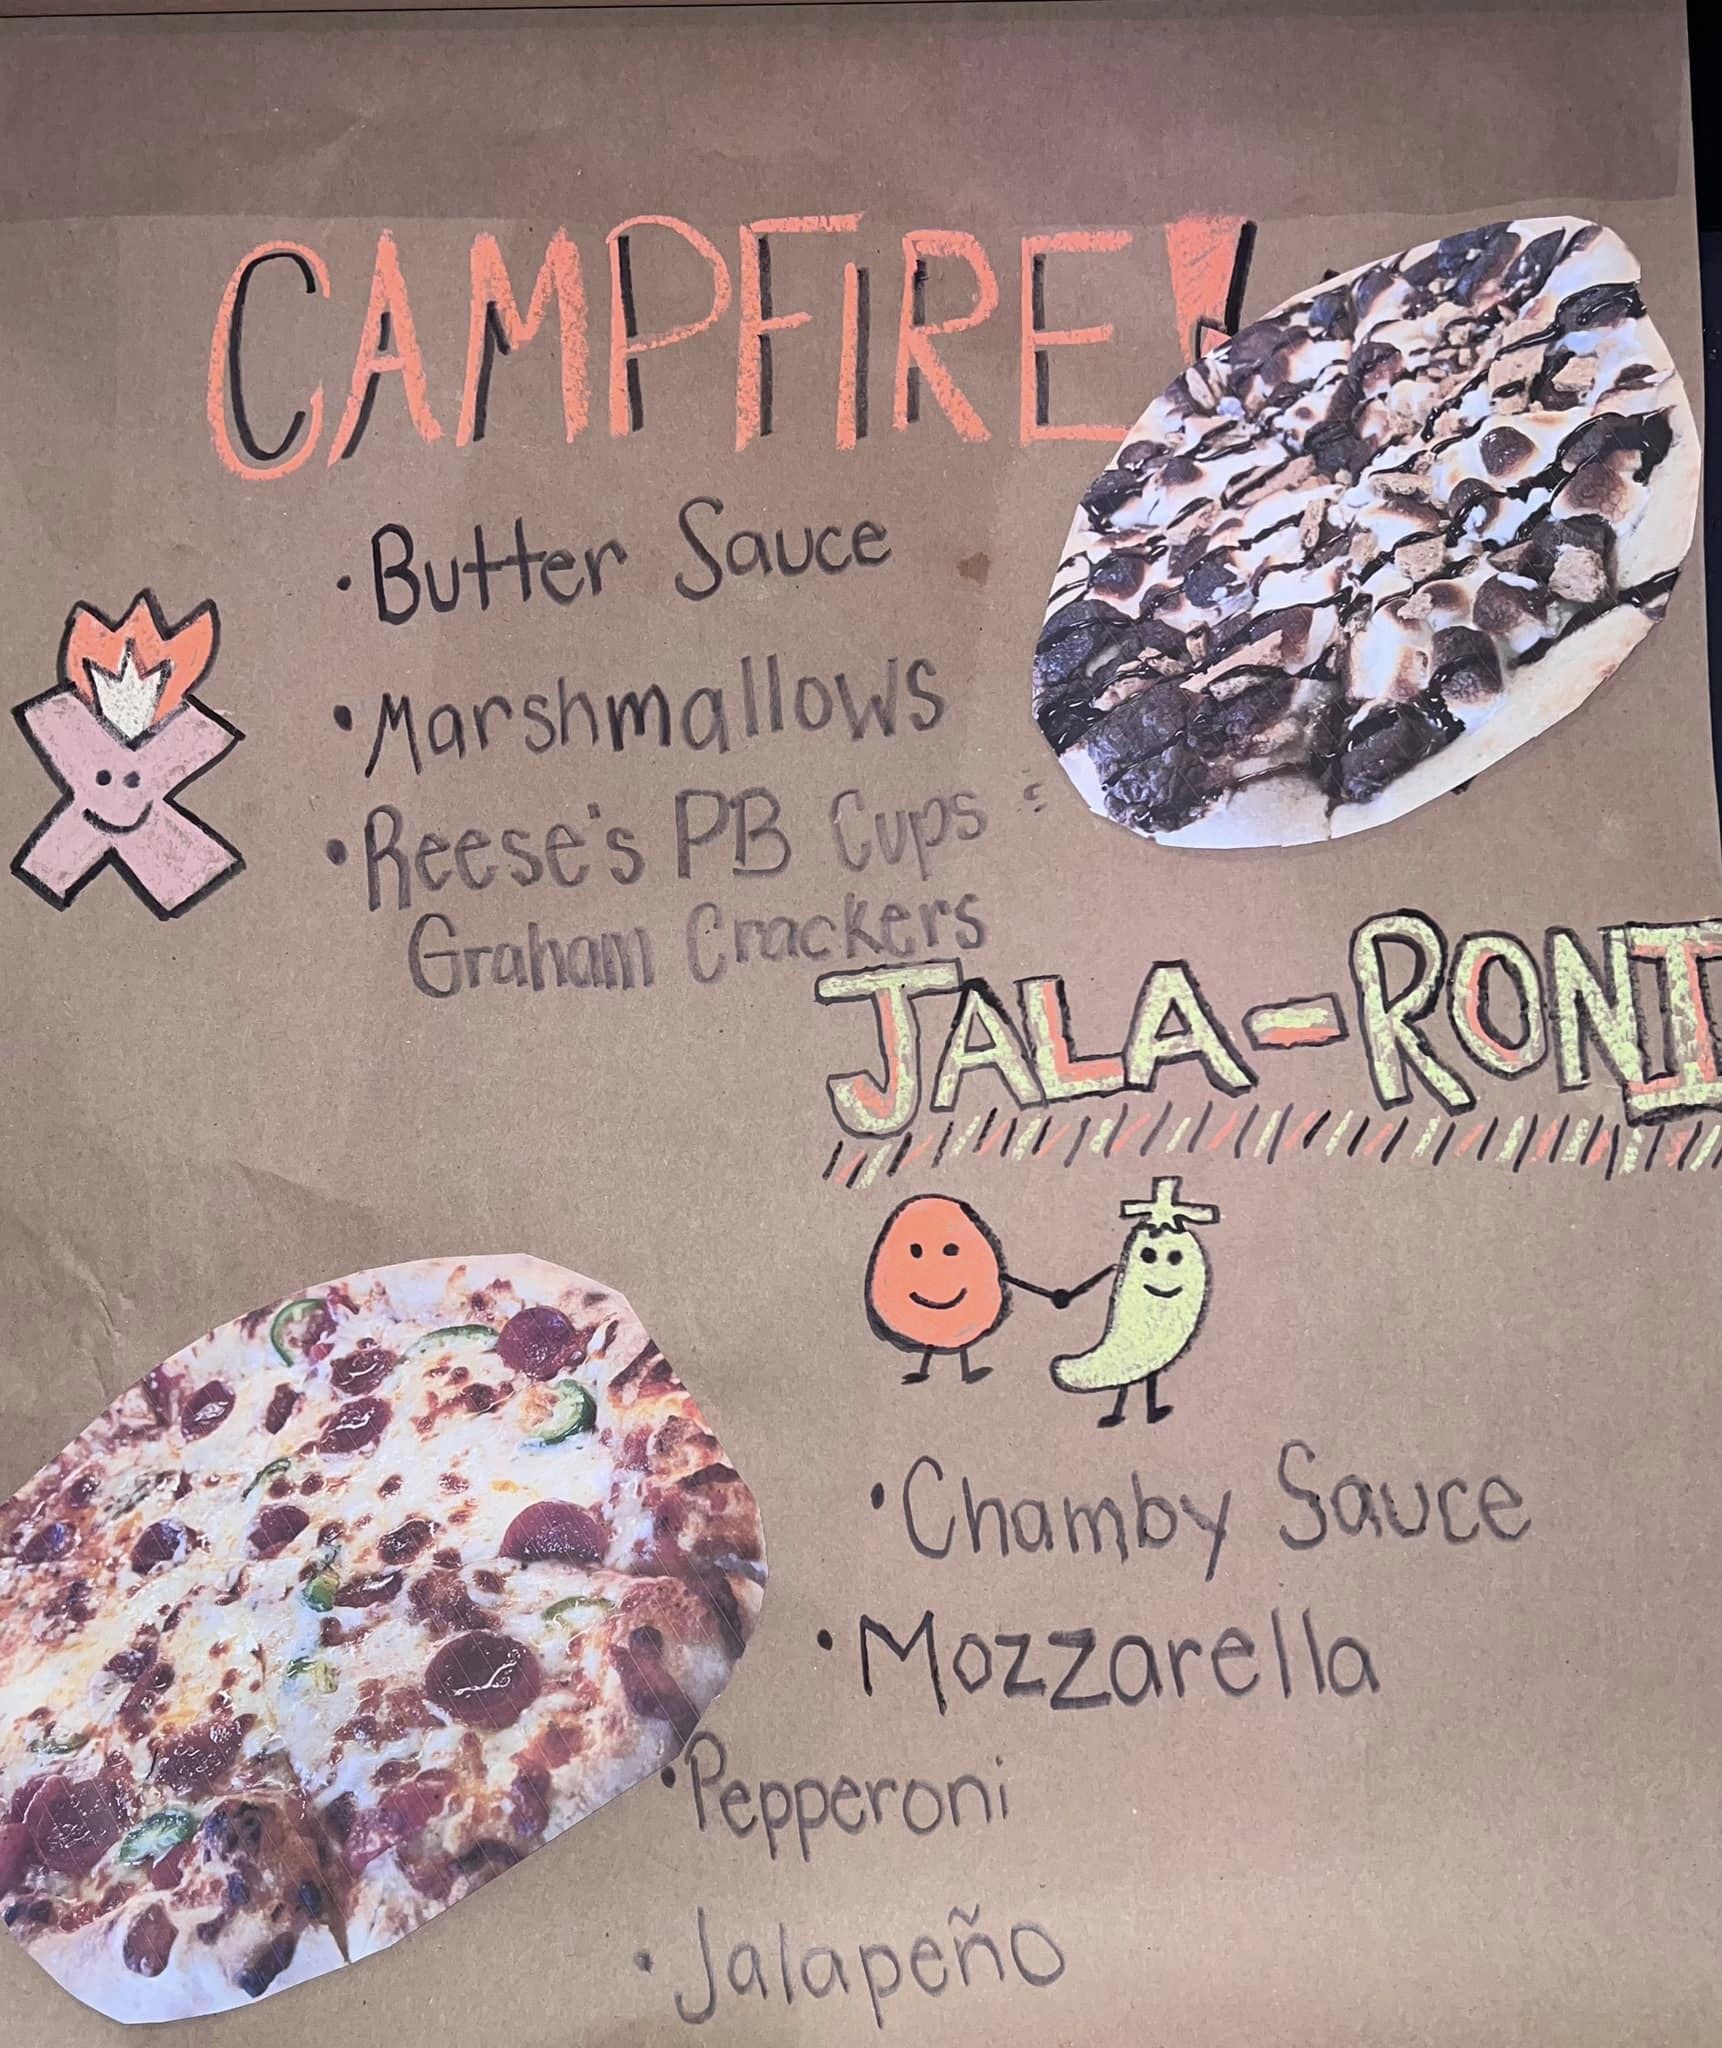 CAMPFIRE!
• Butter Sauce
• Marshmallows
• Reese's PB Cups
Graham Crackers
JALA-RONI
• Chamby Sauce
• Mozzarella
• Pepperoni
• Jalapeño